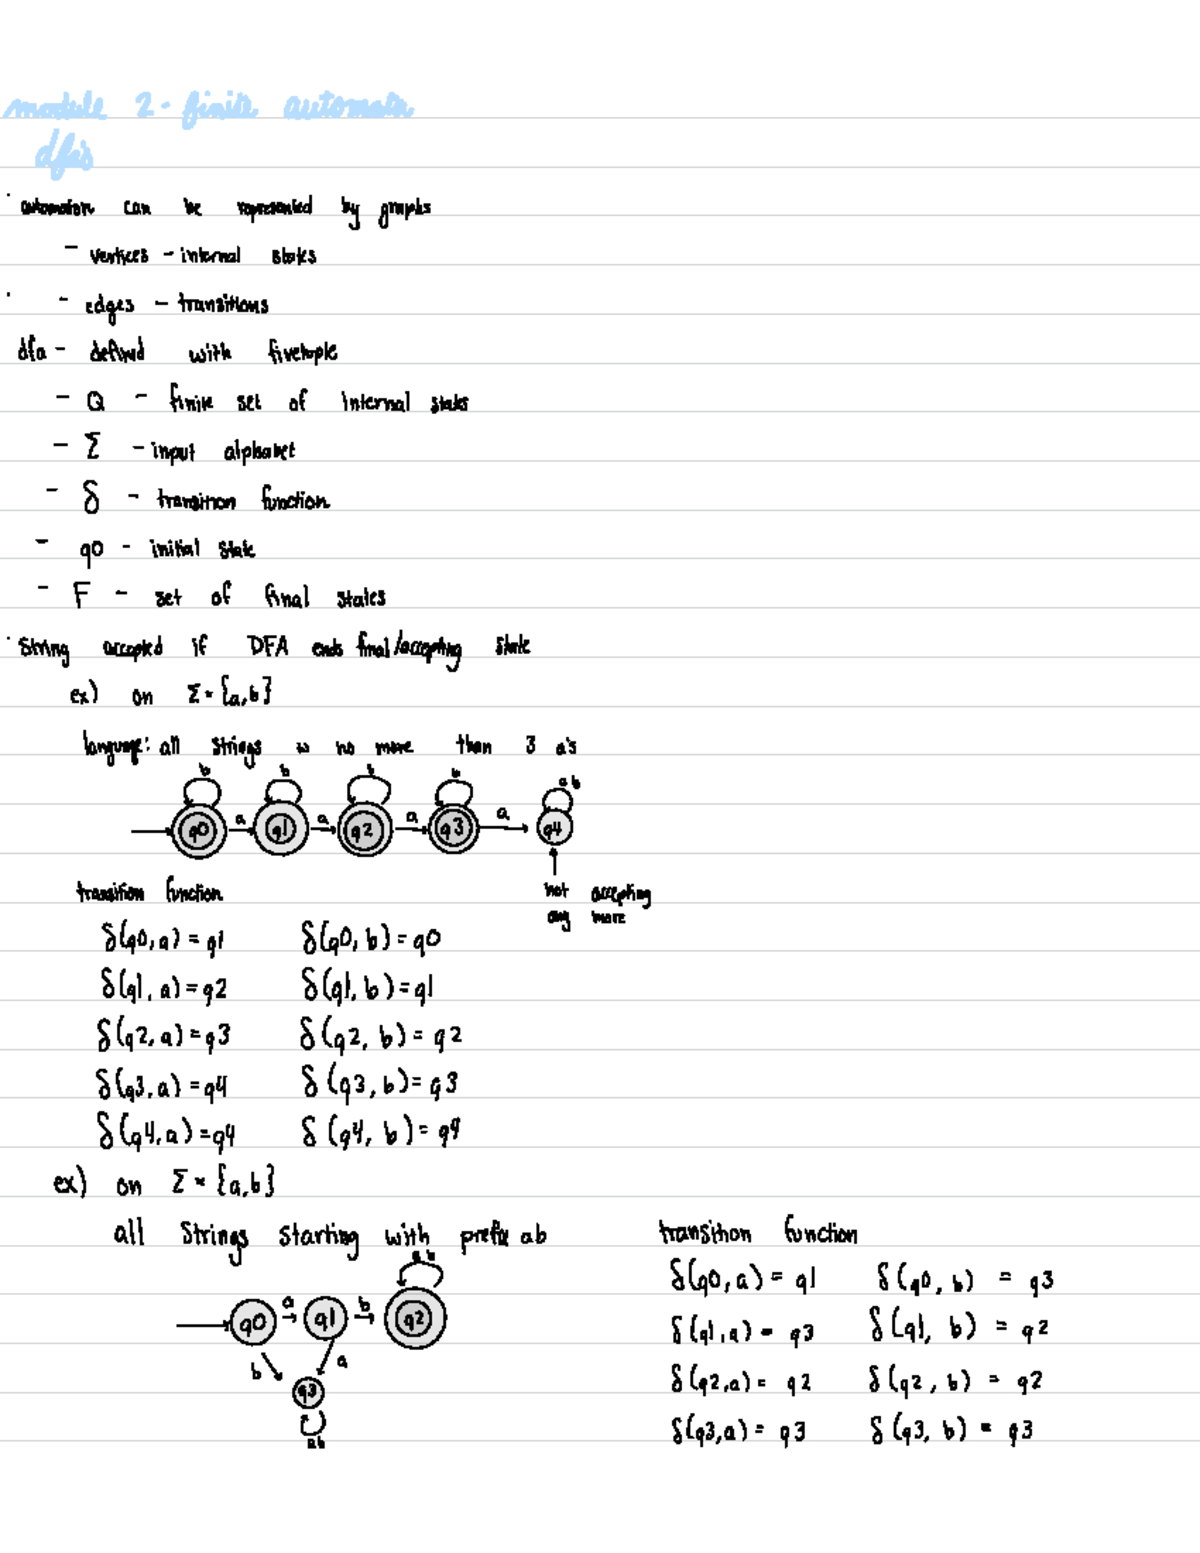 module 2 - finite automata
dfa's
· automaton can be represented by graphs
- vertices - internal states
· - edges - transitions
dfa - defined with fivetuple
- Q - finite set of internal states
- Σ - input alphabet
- δ - transition function
- q0 - initial state
- F - set of final states
· String accepted if DFA ends final/accepting state
ex) on Σ = {a,b}
language: all strings w no more than 3 a's
b b b b a b
q0 a q1 a q2 a q3 a q4
transition function
not accepting
any more
δ(q0, a) = q1 δ(q0, b) = q0
δ(q1, a) = q2 δ(q1, b) = q1
δ(q2, a) = q3 δ(q2, b) = q2
δ(q3, a) = q4 δ(q3, b) = q3
δ(q4, a) = q4 δ(q4, b) = q4
ex) on Σ = {a,b}
all strings starting with prefix ab
a b
q0 a q1 b q2
b a
q3
a b
transition function
δ(q0, a) = q1 δ(q0, b) = q3
δ(q1, a) = q3 δ(q1, b) = q2
δ(q2, a) = q2 δ(q2, b) = q2
δ(q3, a) = q3 δ(q3, b) = q3